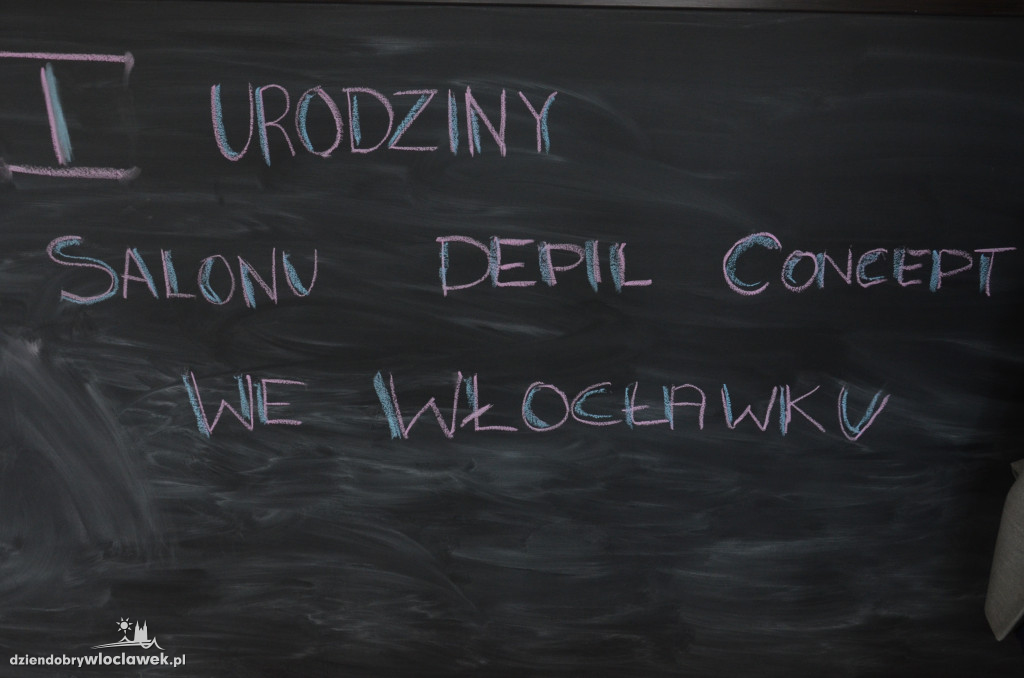 I URODZINY
SALONU DEPIL CONCEPT
WE WŁOCŁAWKU
dziendobrywloclawek.pl